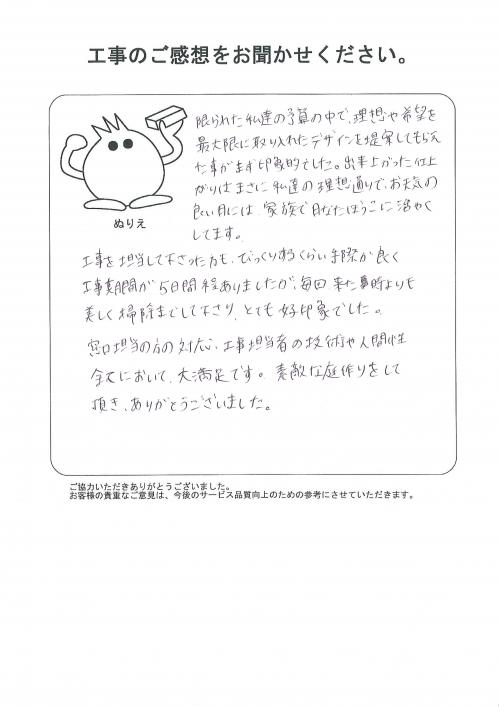 工事のご感想をお聞かせください。
限られた私達の予算の中で、理想や希望を
最大限に取り入れたデザインを提案してもらえ
た事がまず印象的でした。出来上がった仕上
がりはまさに私達の理想通りで、お天気の
良い日には、家族で日なたぼっこに活やく
してます。
ぬりえ
工事を担当して下さった方も、びっくりするくらい手際が良く
工事期間が5日間程ありましたが、毎回来た時よりも
美しく掃除までして下さり、とても好印象でした。
窓口担当の方の対応、工事担当者の技術や人間性
全てにおいて、大満足です。素敵な庭作りをして
頂き、ありがとうございました。
ご協力いただきありがとうございました。
お客様の貴重なご意見は、今後のサービス品質向上のための参考にさせていただきます。